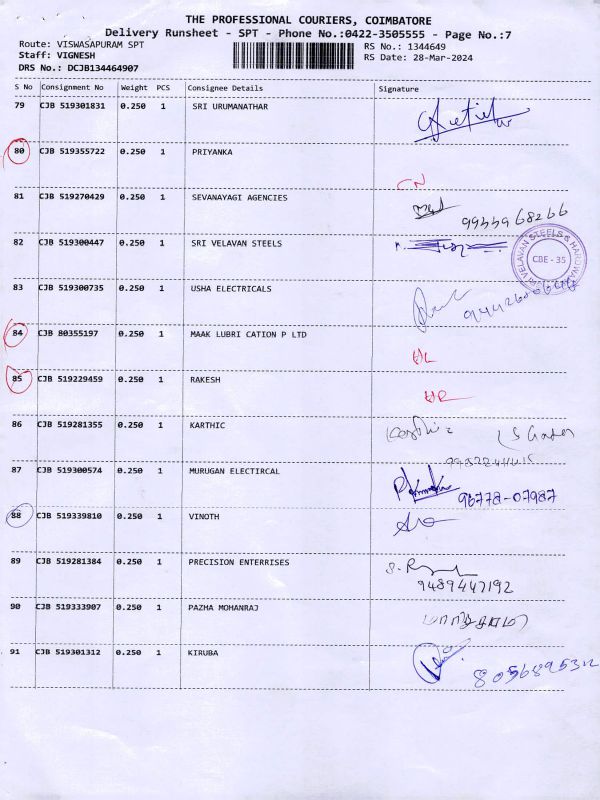 THE PROFESSIONAL COURIERS, COIMBATORE
Delivery Runsheet - SPT - Phone No.:0422-3505555 - Page No.:7
Route: VISWASAPURAM SPT
RS No.: 1344649
Staff: VIGNESH
RS Date: 28-Mar-2024
DRS No.: DCJB134464907
S No Consignment No Weight PCS Consignee Details Signature
79 CJB 519301831 0.250 1 SRI URUMANATHAR
80 CJB 519355722 0.250 1 PRIYANKA
CN
81 CJB 519270429 0.250 1 SEVANAYAGI AGENCIES
9944968266
82 CJB 519300447 0.250 1 SRI VELAVAN STEELS
SRI VELAVAN STEELS & HARDWARE
CBE - 35
83 CJB 519300735 0.250 1 USHA ELECTRICALS
84 CJB 80355197 0.250 1 MAAK LUBRI CATION P LTD
85 CJB 519229459 0.250 1 RAKESH
86 CJB 519281355 0.250 1 KARTHIC
87 CJB 519300574 0.250 1 MURUGAN ELECTIRCAL
96778-07987
88 CJB 519339810 0.250 1 VINOTH
89 CJB 519281384 0.250 1 PRECISION ENTERRISES
9489447192
90 CJB 519333907 0.250 1 PAZHA MOHANRAJ
91 CJB 519301312 0.250 1 KIRUBA
8056895312